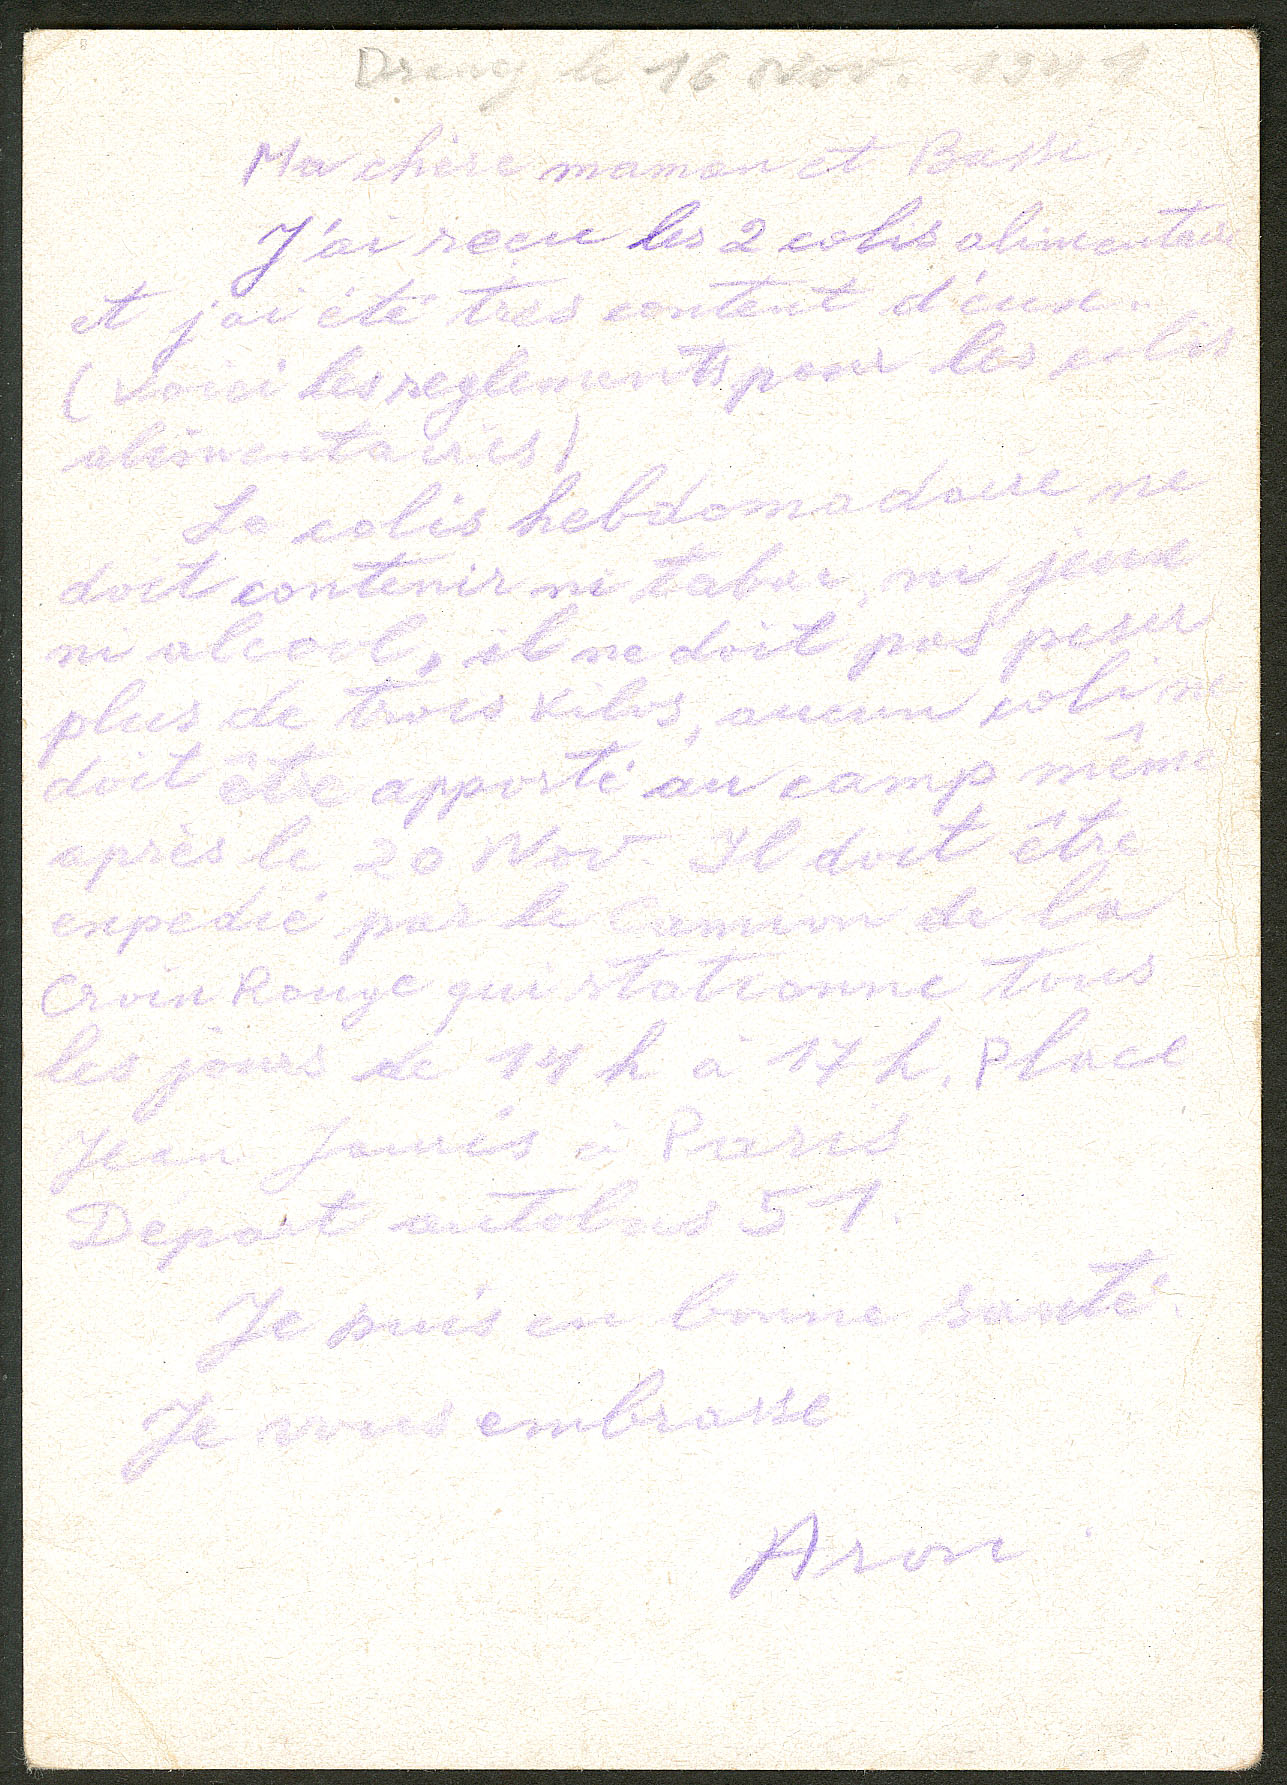 Drancy le 16 Nov. 1941
Ma chère maman et Bassi
J'ai reçu les 2 colis alimentaires
et j'ai été très content d'eux.
(Voici les reglements pour les colis
alimentaires)
Le colis hebdomadaire ne
doit contenir ni tabac, ni jeux
ni alcool, il ne doit pas peser
plus de trois kilos, aucun coli ne
doit être apporté au camp même
après le 20 Nov. Il doit être
expedié par le Camion de la
Croix Rouge qui stationne tous
les jours de 14 h à 17 h. Place
Jean Jaurès à Paris
Depart autobus 51.
Je suis en bonne santé.
Je vous embrasse
Aron